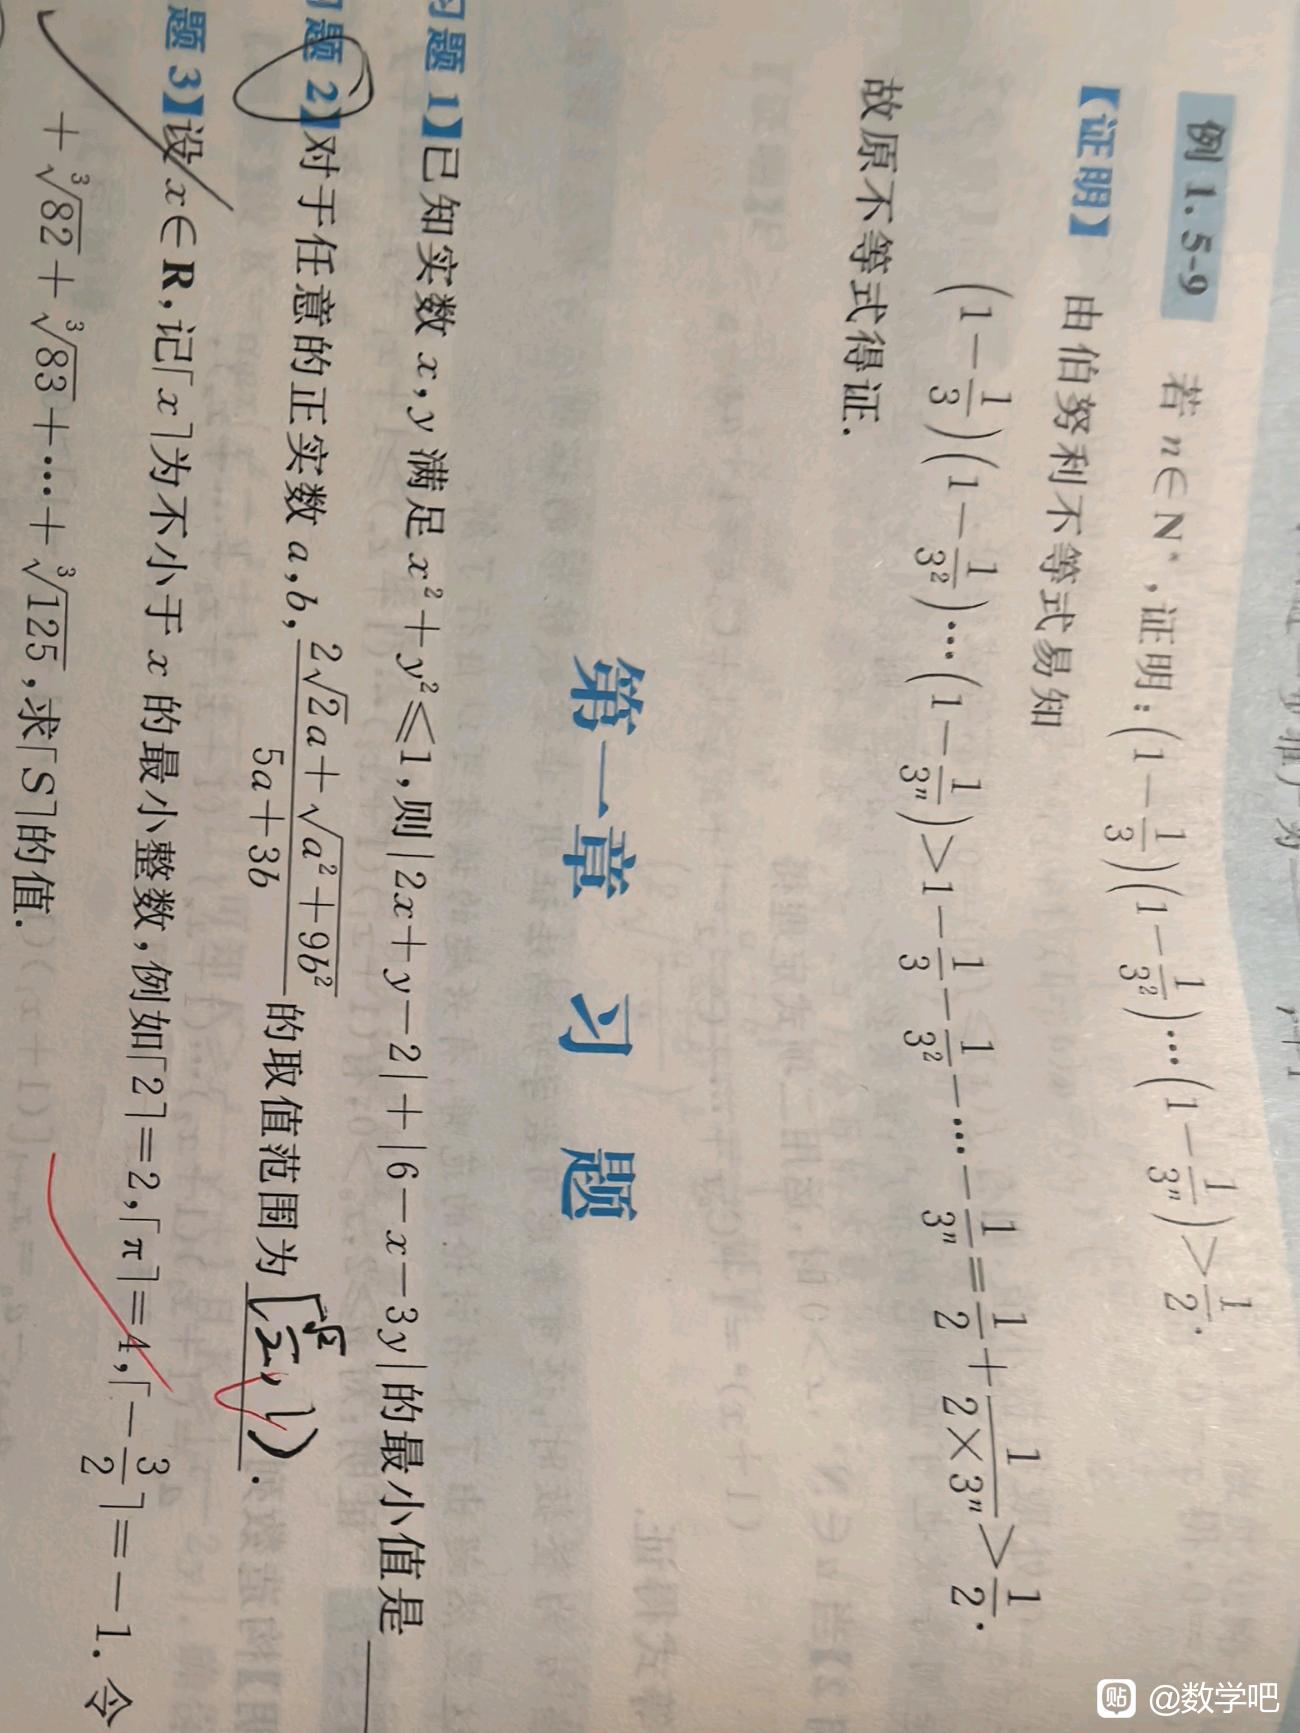 例 1.5-9 若 n∈N*,证明:(1-1/3)(1-1/3²)…(1-1/3ⁿ)>1/2.
【证明】 由伯努利不等式易知
(1-1/3)(1-1/3²)…(1-1/3ⁿ)>1-1/3-1/3²-…-1/3ⁿ=1/2+1/(2×3ⁿ)>1/2.
故原不等式得证.
第一章 习题
习题 1】已知实数 x,y 满足 x²+y²≤1,则|2x+y-2|+|6-x-3y|的最小值是
习题 2】对于任意的正实数 a,b,(2√2a+√(a²+9b²))/(5a+3b)的取值范围为[√2/2,1).
题 3】设 x∈R,记⌈x⌉为不小于 x 的最小整数,例如⌈2⌉=2,⌈π⌉=4,⌈-3/2⌉=-1.令
+∛82+∛83+…+∛125,求⌈S⌉的值.
@数学吧